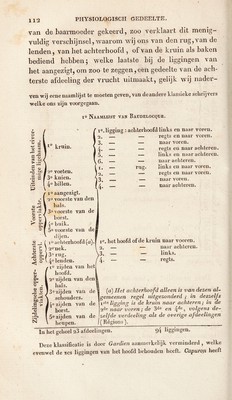 112 PHYSIOLOGISCH GEDEELTE.
van de baarmoeder gekeerd, zoo verklaart dit menig-
vuldig verschijnsel, waarom wij ons van den rug, van de
lenden, van het achterhoofd, of van de kruin als baken
bediend hebben; welke laatste bij de liggingen van
het aangezigt, om zoo te zeggen, een gedeelte van de ach-
terste afdeeling der vrucht uitmaakt, gelijk wij nader-
ten wij eene naamlijst te moeten geven, van de andere klassieke schrijvers
welke ons zijn voorgegaan.
1º NAAMLIJST VAN BAUDELOCQUE.
Uiteinden van het eiron-
mige ligchaam.
1º kruin.
1º. ligging: achterhoofd links en naar voren.
2. — — regts en naar voren.
3. — — naar voren.
4. — — regts en naar achteren.
5. — — links en naar achteren.
6. — — naar achteren.
2º voeten.
3º knien.
4º billen.
1. — rug. links en naar voren.
2. — — regts en naar voren.
3. — — naar voren.
4. — — naar achteren.
Voorste
oppervlakte.
1º aangezigt.
2º voorste van den
hals.
3º voorste van de
borst.
4º buik.
5º voorste van de
dijen.
Achterste
oppervl.
1º achterhoofd (a).
2º nek.
3º rug.
4º lenden.
1º. het hoofd of de kruin naar vooren.
2. — — naar achteren.
3. — — links.
4. — — regts.
Zijdelingsche opper-
vlakken.
1º zijden van het
hoofd.
2º zijden van den
hals.
3º zijden van de
schouders.
4º zijden van de
borst.
5º zijden van de
heupen.
(a) Het achterhoofd alleen is van dezen al-
gemeenen regel uitgezonderd; in deszelfs
ligging is de kruin naar achteren; in de
2de naar voren; de 3de en 4de, volgens de-
zelfde verdeeling als de overige afdeelingen
(Régions).
In het geheel 23 afdeelingen. 94 liggingen.
Deze klassificatie is door Gardien aanmerkelijk verminderd, welke
evenwel de zes liggingen van het hoofd behouden heeft. Capuron heeft